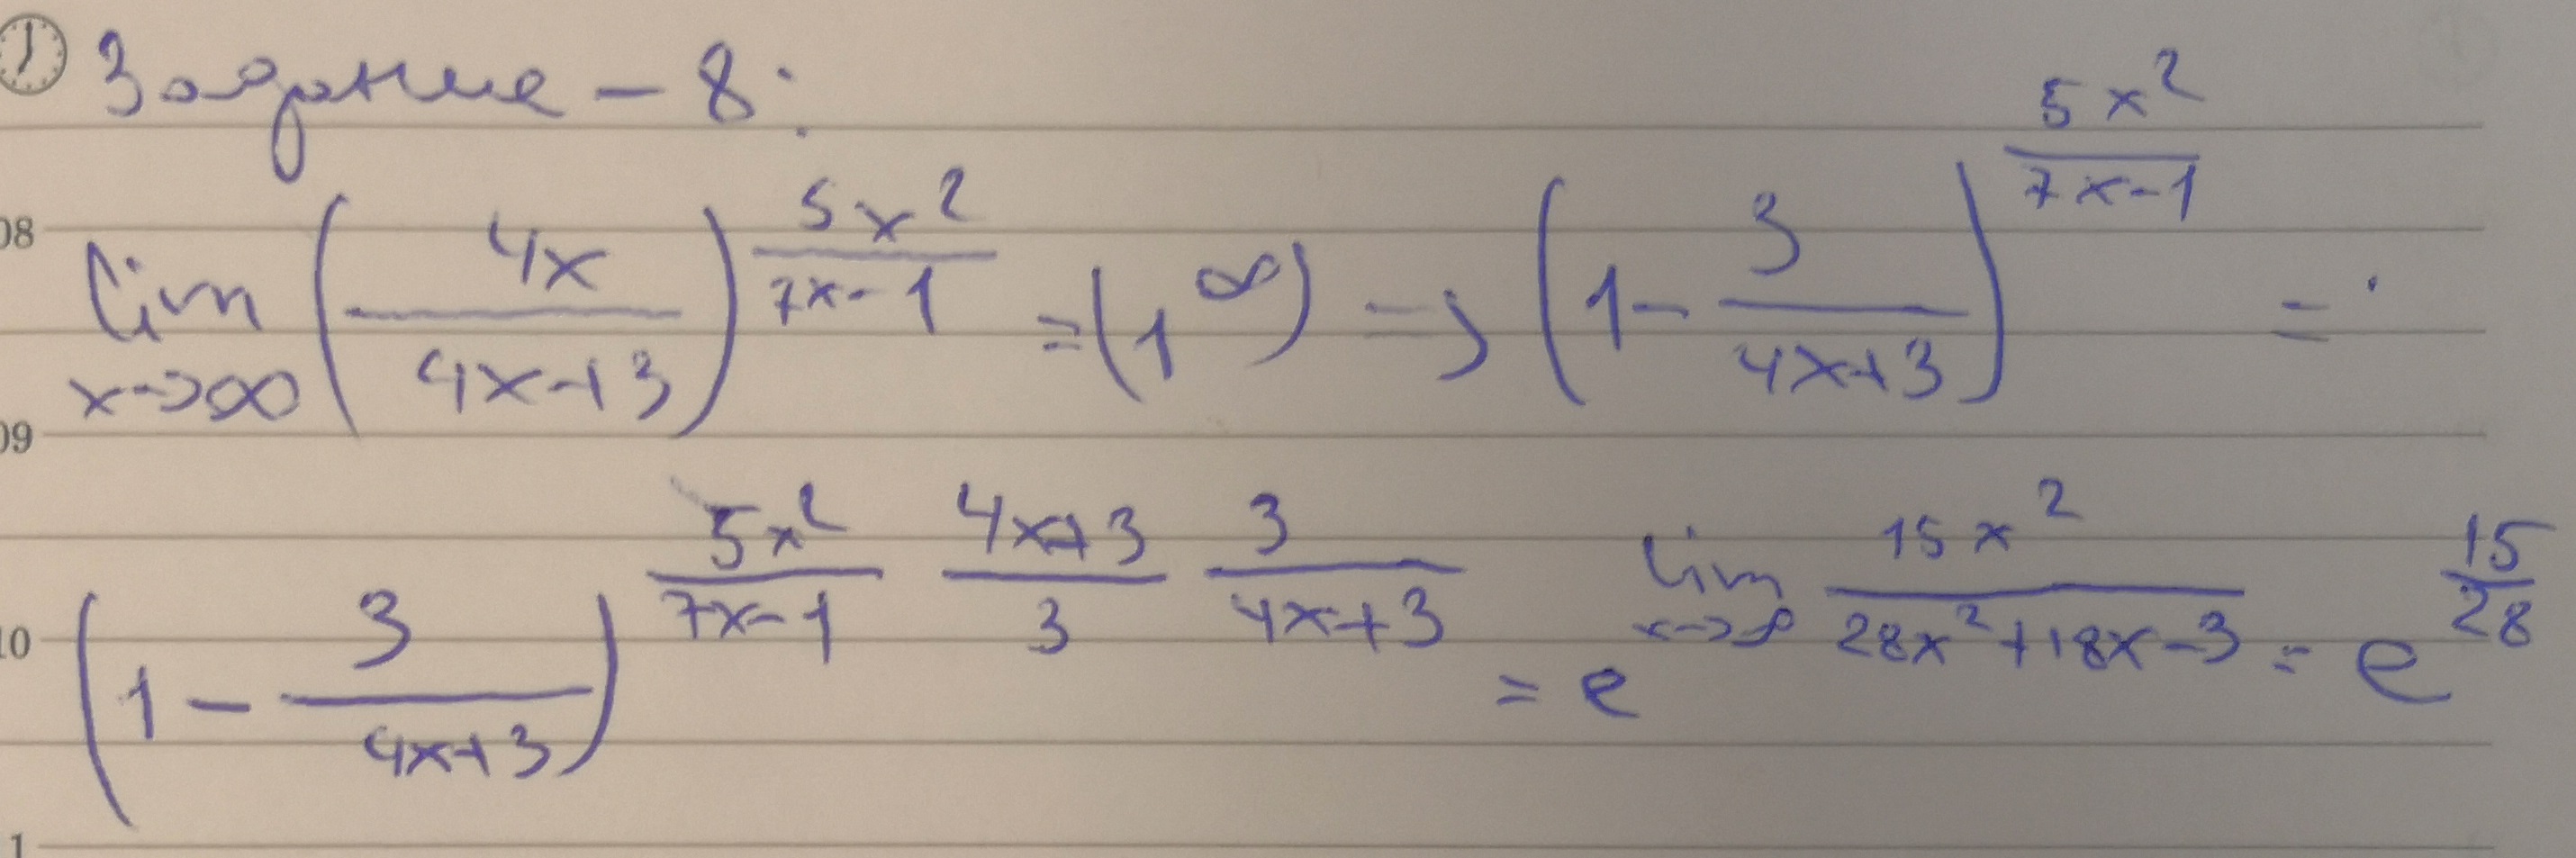 Задание - 8:
08
lim x->∞ (4x / 4x+3)^(5x² / 7x-1) = (1^∞) => (1 - 3 / 4x+3)^(5x² / 7x-1) =
09
10 (1 - 3 / 4x+3)^(5x² / 7x-1 4x+3 / 3 3 / 4x+3) = e^(lim x->∞ 15x² / 28x²+18x-3) = e^(15 / 28)
1